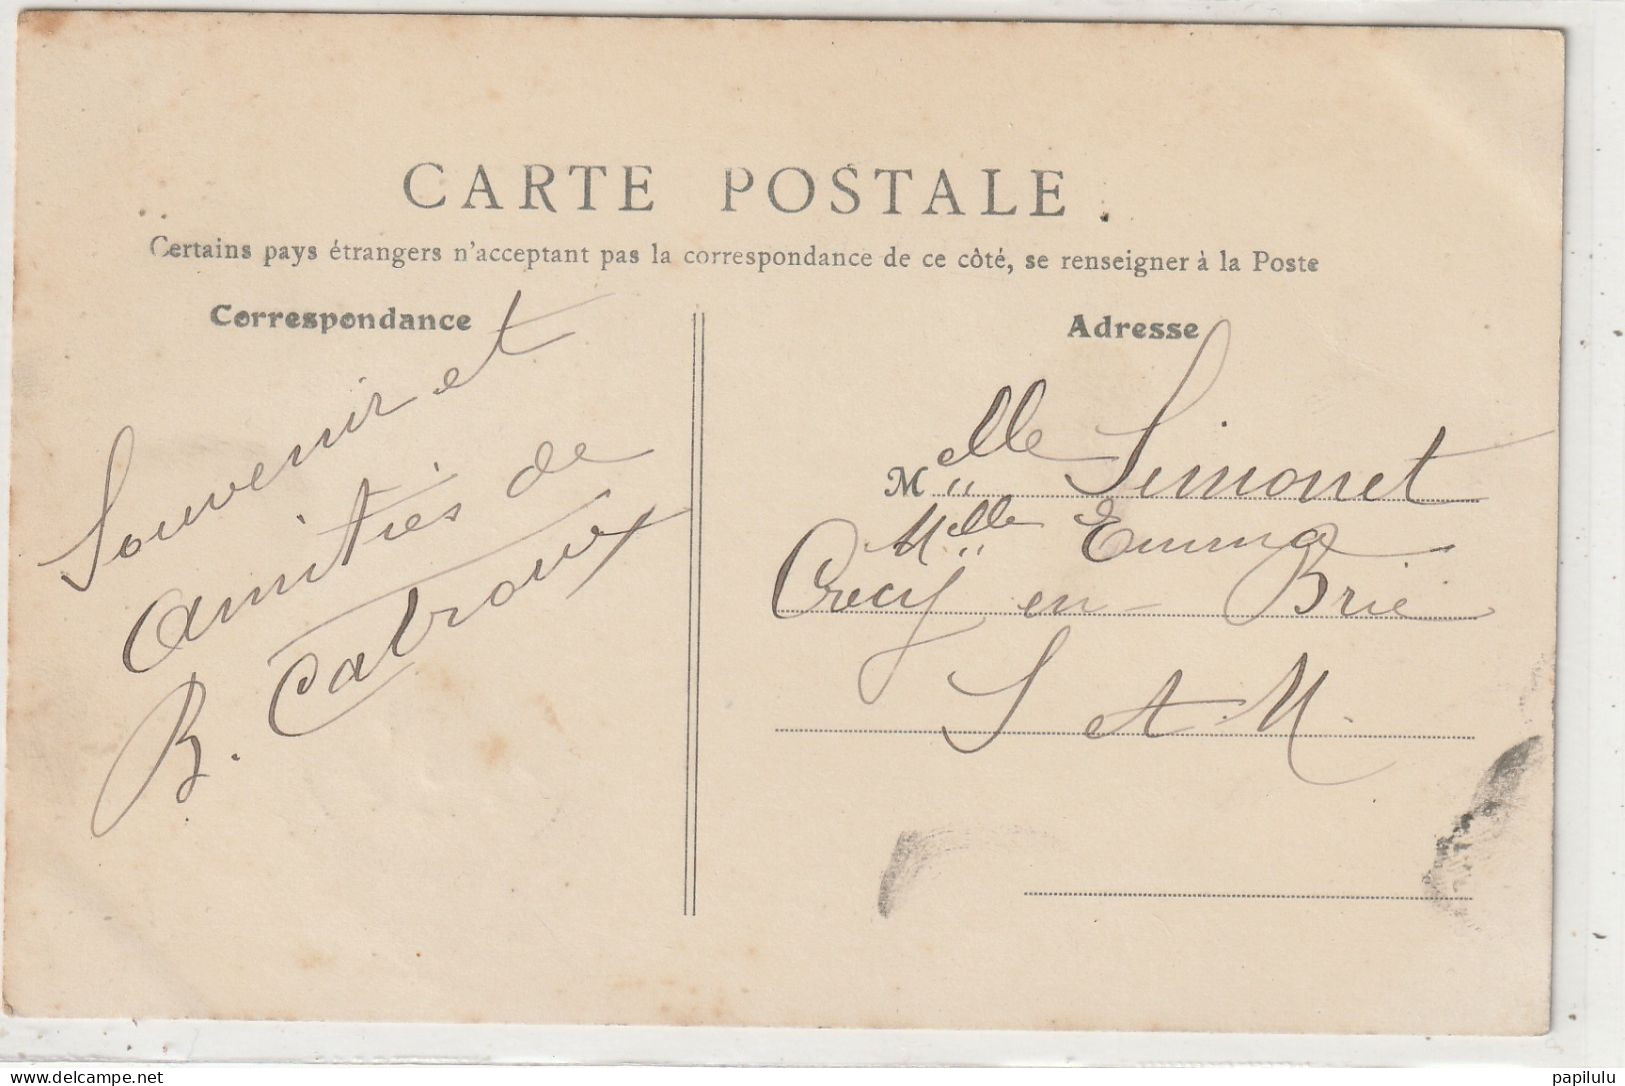 CARTE POSTALE
Certains pays étrangers n'acceptant pas la correspondance de ce côté, se renseigner à la Poste
Correspondance
Souvenir et
amitiés de
B. Catroux
Adresse
Melle Simonet
Melle Emma
Crecy en Brie
S et M.
www.delcampe.net
papilulu